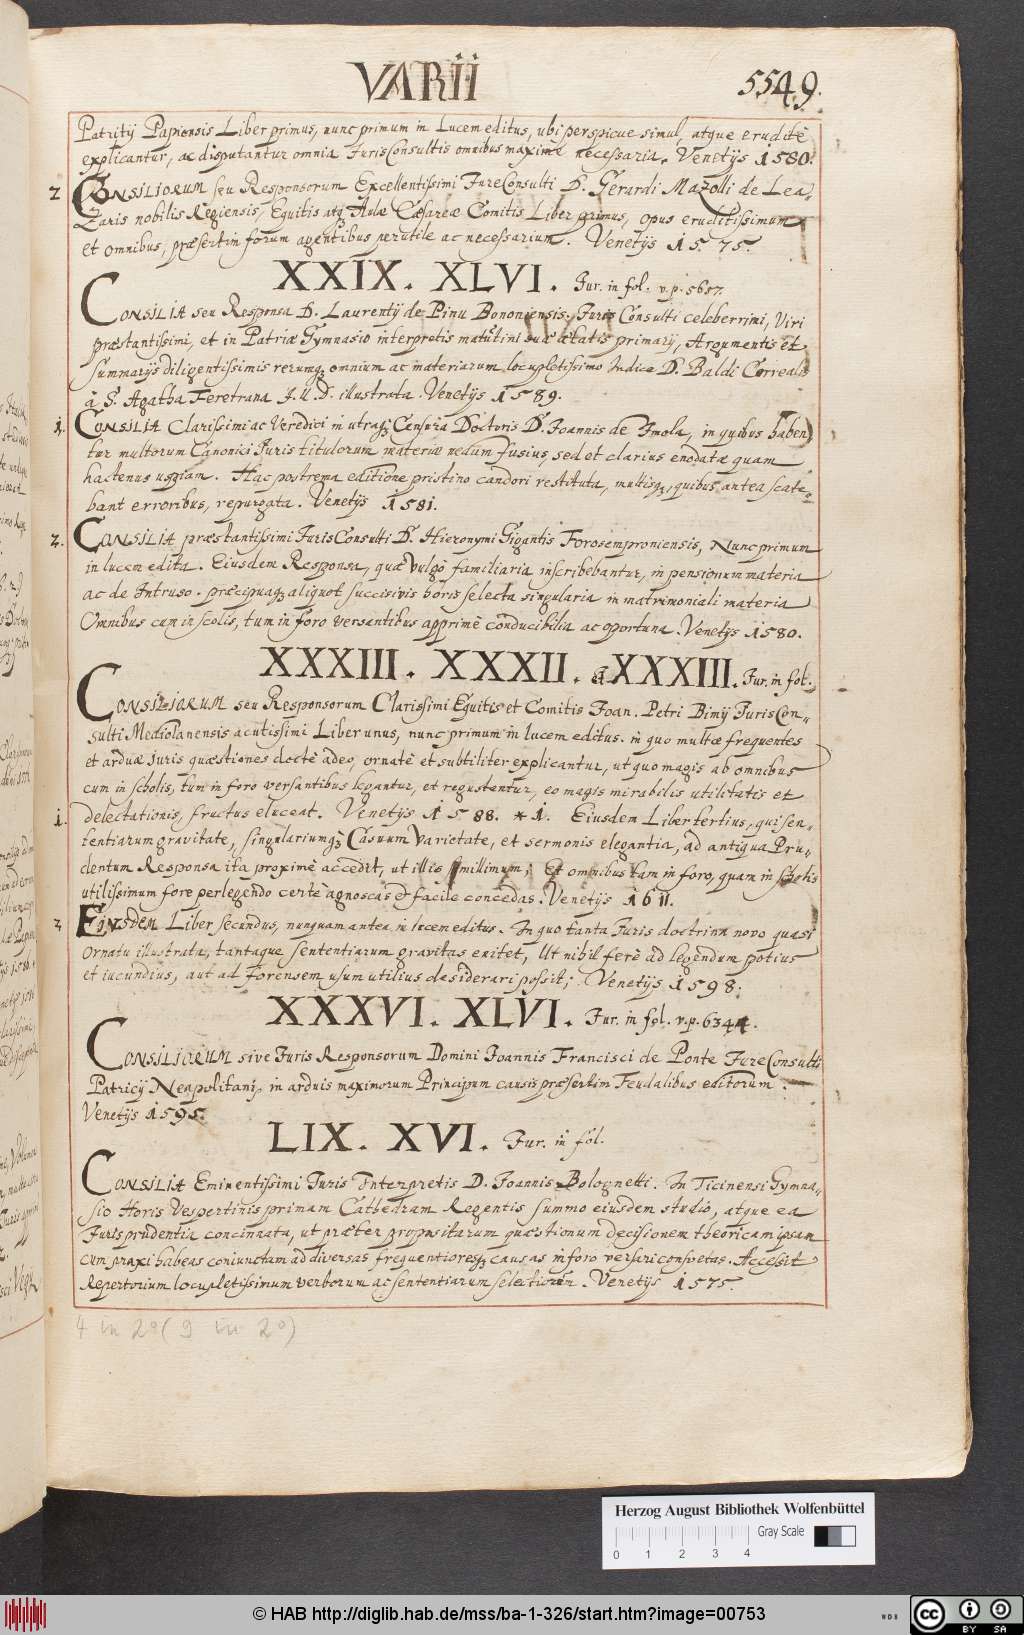 VARII
5549.
Patritij Papiensis Liber primus, nunc primum in Lucem editus, ubi perspicue simul, atque eruditè
explicantur, ac disputantur omnia JurisConsultis omnibus maximè necessaria. Venetijs 1580.
2 CONSILIORUM seu Responsorum Excellentissimi JureConsulti D. Gerardi Mazolli de Lea-
Zaris nobilis Regiensis, Equitis atq; Aulæ Cæsareæ Comitis Liber primus, opus eruditissimum
et omnibus, præsertim forum agentibus perutile ac necessarium. Venetijs 1575.
XXIX. XLVI. Jur. in fol. v.p. 5657.
CONSILIA seu Responsa D. Laurentij de Pinu Bononiensis. Juris Consulti celeberrimi, Viri
præstantissimi, et in Patriæ Gymnasio interpretis matutini suæ ætatis primarij, Argumentis et
summarijs diligentissimis rerumq; omnium ac materiarum locupletissimo Indice D. Baldi Correalis
à S. Agatha Feretrana J.U.D. illustrata. Venetijs 1589.
1. CONSILIA Clarissimi ac Veredici in utraq; Censura Doctoris D. Joannis de Imola, in quibus haben
tur multorum Canonici Juris titulorum materiæ nedum fusius, sed et clarius enodatæ quam
hactenus usquam. Hac postrema editione pristino candori restituta, multisq;, quibus antea scate-
bant erroribus, repurgata. Venetijs 1581.
2. CONSILIA præstantissimi JurisConsulti D. Hieronymi Gigantis Forosemproniensis, Nunc primum
in lucem edita. Eiusdem Responsa, quæ vulgò familiaria inscribebantur, in pensionum materia
ac de Intruso. præcipuaq; aliquot succisivis horis selecta singularia in matrimoniali materia
Omnibus cum in scolis, tum in foro versantibus apprimè conducibilia ac oportuna. Venetijs 1580.
XXXIII. XXXII. & XXXIII. Jur. in fol.
CONSILIORUM seu Responsorum Clarissimi Equitis et Comitis Joan. Petri Bimij JurisCon-
sulti Mediolanensis acutissimi Liber unus, nunc primum in lucem editus. in quo multæ frequentes
et arduæ juris quæstiones doctè adeo, ornatè et subtiliter explicantur, ut quo magis ab omnibus
cum in scholis, tum in foro versantibus legantur, et regustentur, eo magis mirabilis utilitatis et
1. delectationis, fructus eluceat. Venetijs 1588. * 1. Eiusdem Liber tertius, qui sen-
tentiarum gravitate, singulariumq; Casuum varietate, et sermonis elegantia, ad antiqua Pru-
dentum Responsa ita proximè accedit, ut illis simillimum; Et omnibus tam in foro, quam in scholis
utilissimum fore perlegendo certè agnoscas & facile concedas. Venetijs 1611.
EIUSDEM Liber secundus, nunquam antea in lucem editus. In quo tanta Juris doctrina novo quasi
Ornatu illustrata, tantaque sententiarum gravitas exitet, Ut nihil ferè ad legendum potius
et iucundius, aut ad forensem usum utilius desiderari possit; Venetijs 1598.
XXXVI. XLVI. Jur. in fol. v.p. 6344.
CONSILIORUM sive Juris Responsorum Domini Joannis Francisci de Ponte JureConsulti
Patricij Neapolitani, in arduis maximorum Principum causis præsertim Feudalibus editorum.
Venetijs 1595.
LIX. XVI. Jur. in fol.
CONSILIA Eminentissimi Juris Interpretis D. Joannis Bolognetti. In Ticinensi Gymna-
sio Horis Vespertinis primam Cathedram Regentis summo eiusdem studio, atque ea
Jurisprudentia concinnata, ut præter propositarum quæstionum decisionem theoricam ipsam
cum praxi habeas coniunctam ad diversas frequentioresq; causas in foro versari consvetas. Accessit
Repertorium locupletissimum verborum ac sententiarum selectiorum. Venetijs 1575.
4 in 2° (9 in 2°)
Herzog August Bibliothek Wolfenbüttel
Gray Scale
0 1 2 3 4
© HAB http://diglib.hab.de/mss/ba-1-326/start.htm?image=00753
WDB
cc BY SA